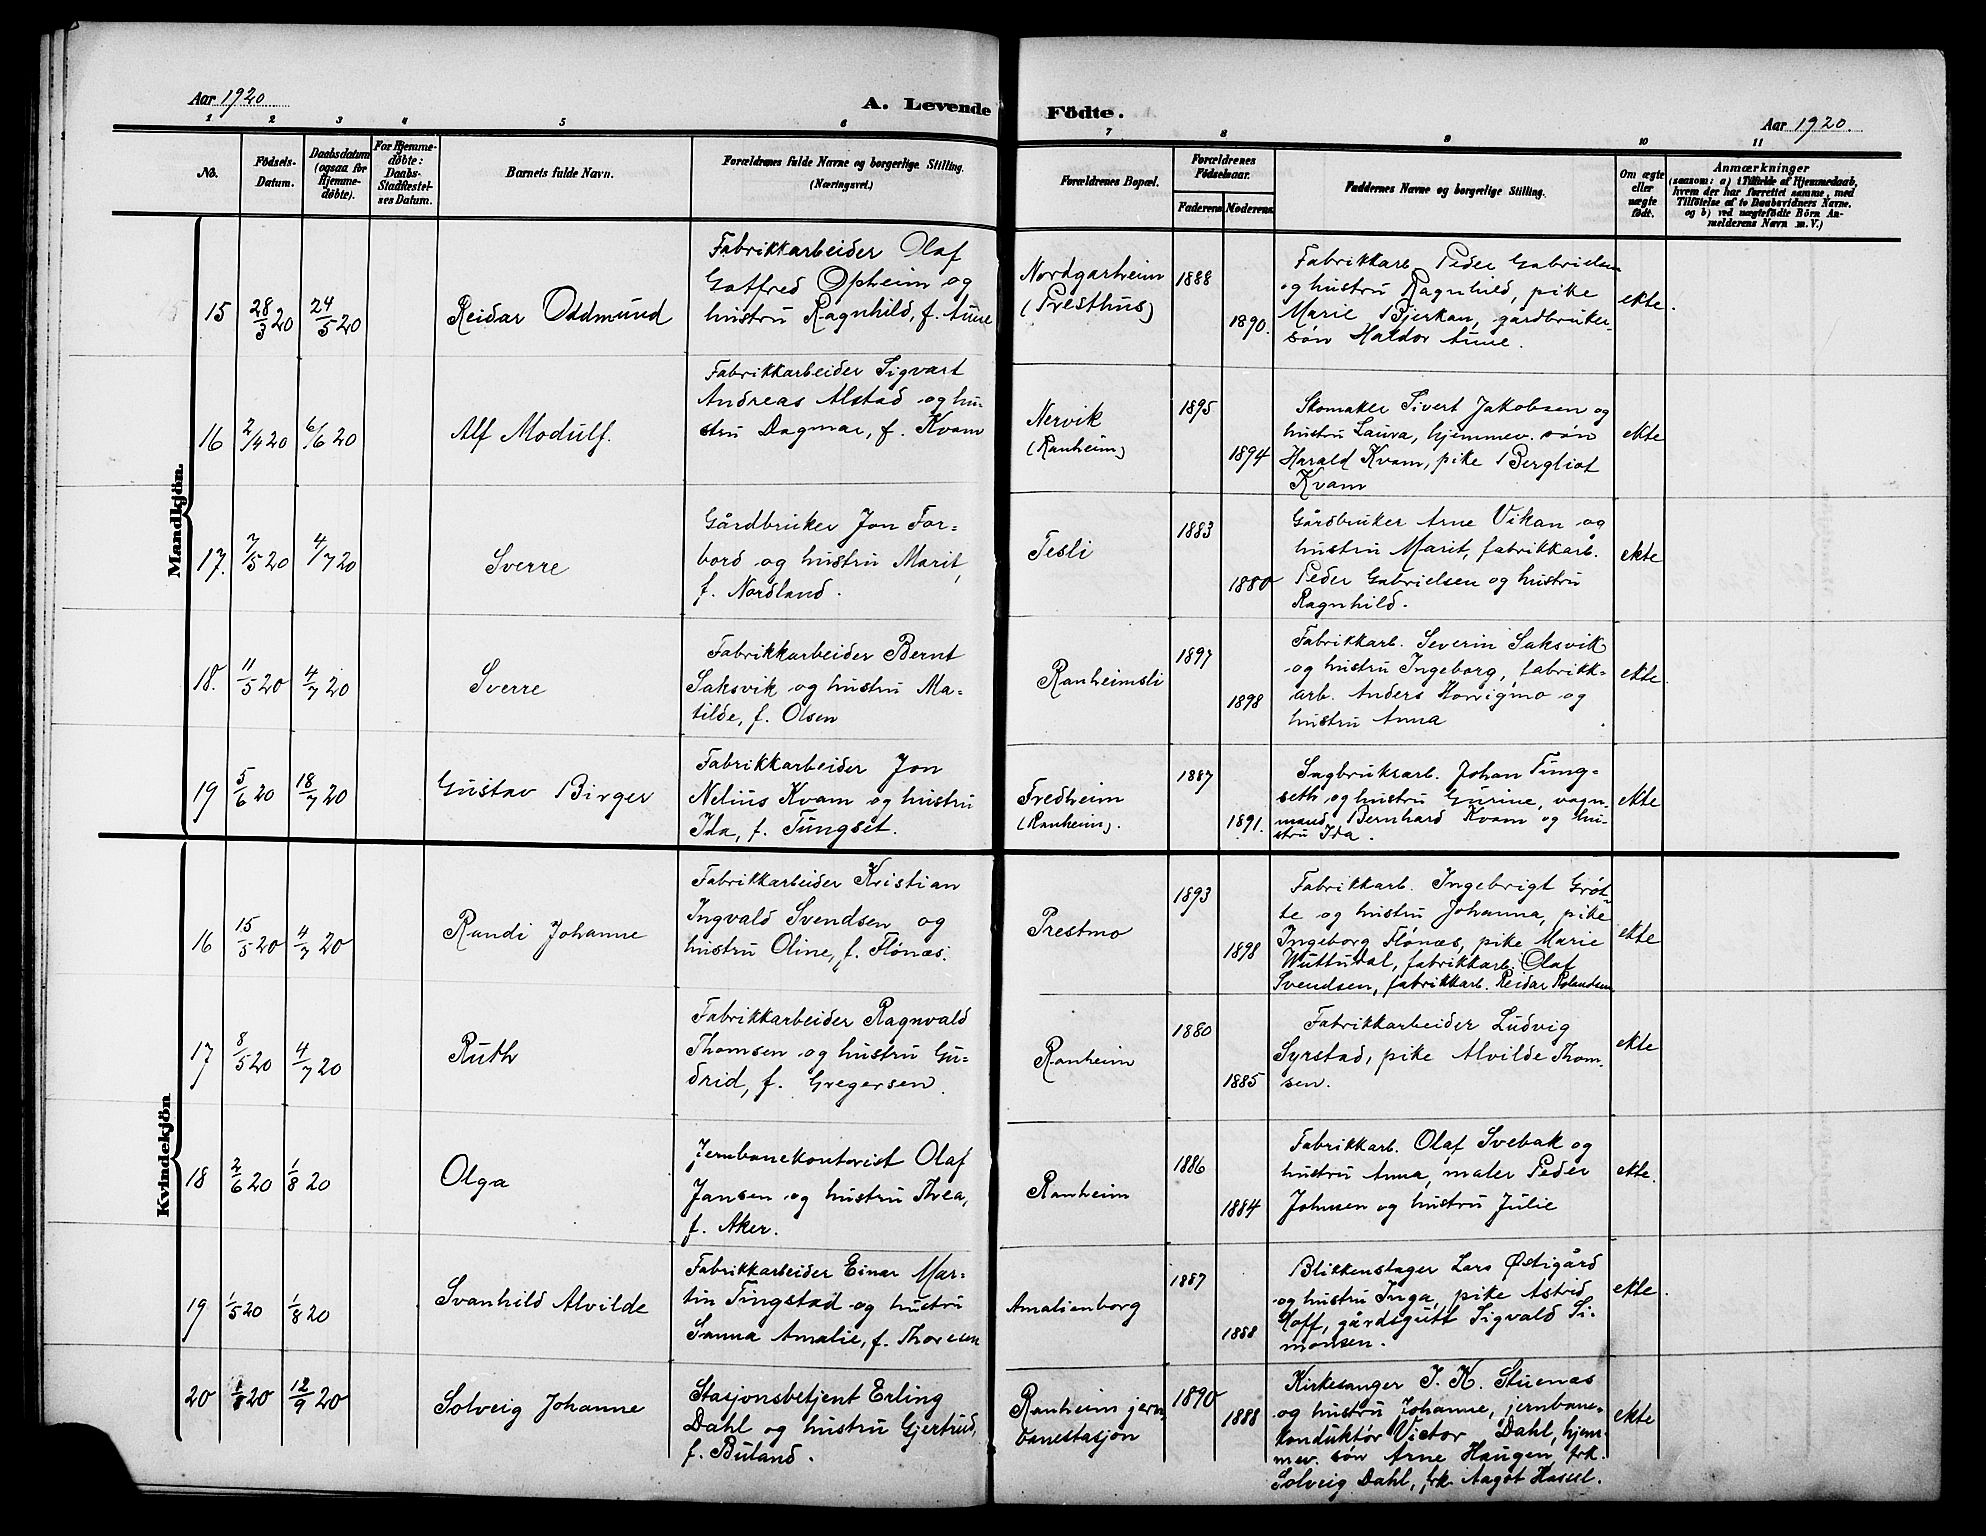 Aar 1920
A. Levende Födte.
Aar 1920.
1 2 3 4 5 6 7 8 9 10 11
No.
Födsels-
Datum.
Daabsdatum
(ogsaa for
Hjemme-
döbte).
For Hjemme-
døbte:
Daabs-
Stadfæstel-
ses Datum.
Barnets fulde Navn.
Forældrenes fulde Navne og borgerlige Stilling.
(Næringsvei.)
Forældrenes Bopæl.
Forældrenes
Födselsaar.
Faderens Moderens
Faddernes Navne og borgerlige Stilling.
Om ægte
eller
uægte
födt.
Anmærkninger
(saasom: a) i Tilfælde af Hjemmedaab,
hvem der har forrettet samme, med
Tilföielse af to Daabsvidners Navne.
og b) ved uægtefödte Börn An-
melderens Navn m. V.)
Mandkjön.
15
28/3 20
24/5 20
Reidar Oddmund
Fabrikkarbeider Olaf
Gotfred Opheim og
hustru Ragnhild, f. Aune
Nordgarheim
(Presthus)
1888
1890.
Fabrikkarb. Peder Gabrielsen
og hustru Ragnhild, pike
Marie Bjerkan, gardbruker-
søn Haldor Aune.
ekte.
16
2/4 20
6/6 20
Alf Modulf.
Fabrikkarbeider Sigvart
Andreas Alstad og hu-
stru Dagmar, f. Kvam
Nervik
(Ranheim)
1895
1894
Skomaker Sivert Jakobsen og
hustru Laura, hjemmev. søn
Harald Kvam, pike Bergliot
Kvam
ekte
17.
7/5 20
4/7 20
Sverre
Gårdbruker Jon For-
bord og hustru Marit,
f. Nordland.
Tesli
1883
1880
Gårdbruker Arne Vikan og
hustru Marit, fabrikkarb.
Peder Gabrielsen og hustru
Ragnhild.
ekte
18.
11/5 20
4/7 20
Sverre
Fabrikkarbeider Bernt
Saksvik og hustru Ma-
tilde, f. Olsen
Ranheimsli
1897
1898
Fabrikkarb. Severin Saksvik
og hustru Ingeborg, fabrikk-
arb. Anders Horrigmo og
hustru Anna
ekte
19
5/6 20
18/7 20
Gustav Birger
Fabrikkarbeider Jon
Nelius Kvam og hustru
Ida, f. Tungset.
Fredheim
(Ranheim).
1887
1891.
Sagbruksarb. Johan Tung-
seth og hustru Gurine, vogn-
mand Bernhard Kvam og hu-
stru Ida.
ekte
Kvindekjön
16
15/5 20
4/7 20
Randi Johanne
Fabrikkarbeider Kristian
Ingvald Svendsen og
hustru Oline, f. Flønæs.
Prestmo
1893
1898
Fabrikkarb. Ingebrigt Grøt-
te og hustru Johanna, pike
Ingeborg Flønæs, pike Marie
Wuttudal, fabrikkarb. Olaf
Svendsen, fabrikkarb. Reidar Rolandsen
ekte
17
8/5 20
4/7 20
Ruth
Fabrikkarbeider Ragnvald
Thomsen og hustru Gu-
drid, f. Gregersen.
Ranheim
1880
1885
Fabrikkarbeider Ludvig
Syrstad, pike Alvilde Thom-
sen.
ekte
18
2/6 20
1/8 20
Olga
Jernbanekontorist Olaf
Jansen og hustru Thea,
f. Aker.
Ranheim
1886
1884
Fabrikkarb. Olaf Svebak og
hustru Anna, maler Peder
Johnsen og hustru Julie
ekte.
19
1/5 20
1/8 20
Svanhild Alvilde
Fabrikkarbeider Einar Mar-
tin Tingstad og hustru
Sanna Amalie, f. Thorsen
Amalienborg
1887
1888
Blikkenslager Lars Østigård
og hustru Inga, pike Astrid
Hoff, gårdsgutt Sigvald Si-
monsen.
ekte.
20
1/8 20
12/9 20
Solveig Johanne
Stasjonsbetjent Erling
Dahl og hustru Gjertrud,
f. Buland.
Ranheim jern-
banestasjon
1890
1888
Kirkesanger J. K. Stuenæs
og hustru Johanne, jernbane-
konduktør Victor Dahl, hjem-
mev. søn Arne Haugen, frk.
Solveig Dahl, frk. Aagot Hassel.
ekte